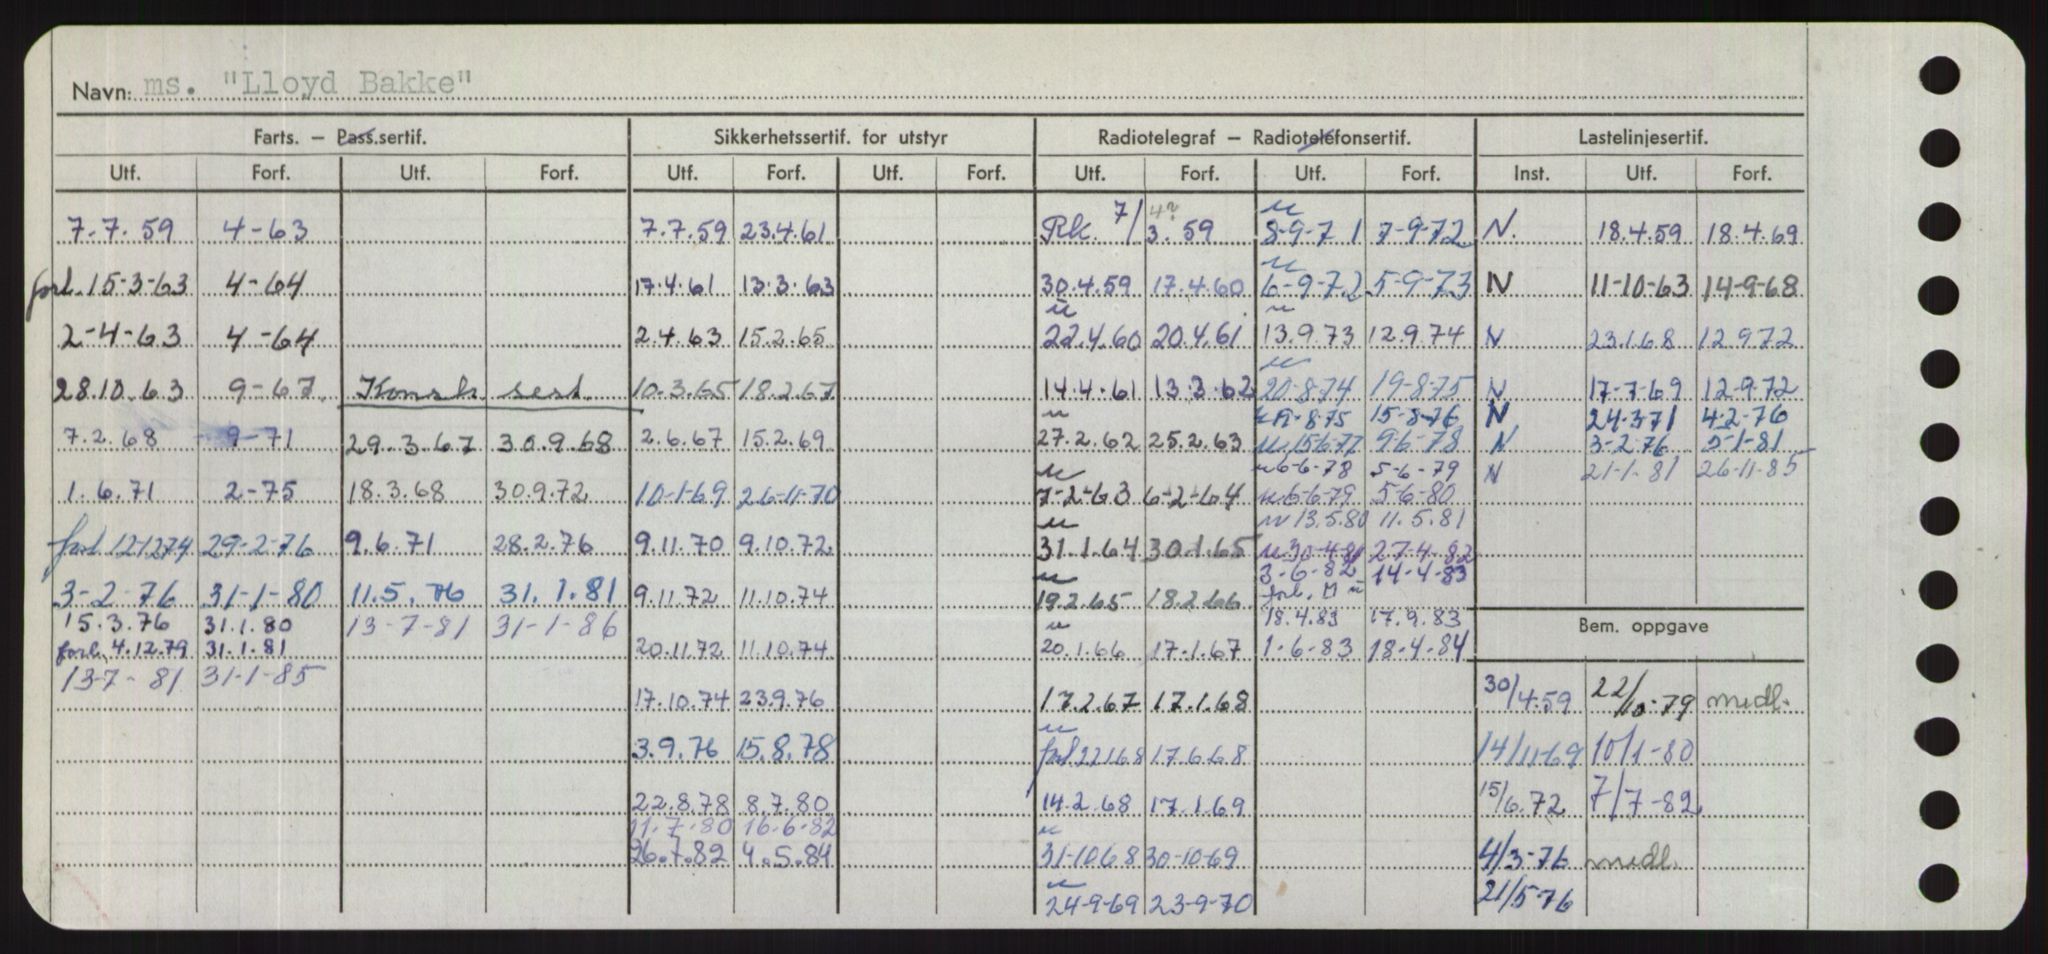 Navn: ms. "Lloyd Bakke"
Farts. – Pass.sertif. Sikkerhetssertif. for utstyr Radiotelegraf – Radiotelefonsertif. Lastelinjesertif.
Utf. Forf. Utf. Forf. Utf. Forf. Utf. Forf. Utf. Forf. Utf. Forf. Inst. Utf. Forf.
7.7.59 4-63 7.7.59 23.4.61 Rk. 7/3.59 8-9-71 7-9-72 N. 18.4.59 18.4.69
forl. 15-3-63 4-64 17.4.61 13.3.63 30.4.59 17.4.60 6-9-72 5-9-73 N 11-10-63 14-9-68
2-4-63 4-64 2.4.63 15.2.65 22.4.60 20.4.61 13.9.73 12.9.74 N 23.1.68 12.9.72
28.10.63 9-67 Konstr. sert. 10.3.65 18.2.67 14.4.61 13.3.62 20-8-74 19-8-75 N 17-7-69 12-9-72
19-8-75 15-8-76 N 24-3-71 4-2-76
7.2.68 9-71 29.3.67 30.9.68 2.6.67 15.2.69 27.2.62 25.2.63 15-6-77 9-6-78 N 3-2-76 5-1-81
6-6-78 5-6-79 N 21-1-81 26-11-85
1.6.71 2-75 18.3.68 30.9.72 10-1-69 26-11-70 7-2-63 6-2-64 6-6-79 5-6-80
13.5.80 11.5.81
forl 12-12-74 29-2-76 9.6.71 28.2.76 9.11.70 9.10.72 31.1.64 30.1.65 30-4-81 27-4-82
3-6-82 14-4-83
3-2-76 31-1-80 11.5.76 31.1.81 9.11.72 11.10.74 19.2.65 18.2.66 forl.
15.3.76 31.1.80 13-7-81 31-1-86 18.4.83 17.9.83
Bem. oppgave
forl. 4.12.79 31.1.81 20.11.72 11.10.74 20.1.66 17.1.67 1-6-83 18-4-84
13-7-81 31-1-85
17.10.74 23.9.76 17.2.67 17.1.68 30/4.59 22/10-79 midl.
3.9.76 15.8.78 forl. 22.1.68 17.6.68 14/11-69 10/1-80
22.8.78 8.7.80 14.2.68 17.1.69 15/6.72 7/7-82
11-7-80 16-6-82
26.7.82 4.5.84 31-10.68 30-10-69 4/3-76 midl.
24-9-69 23-9-70 21/5-76